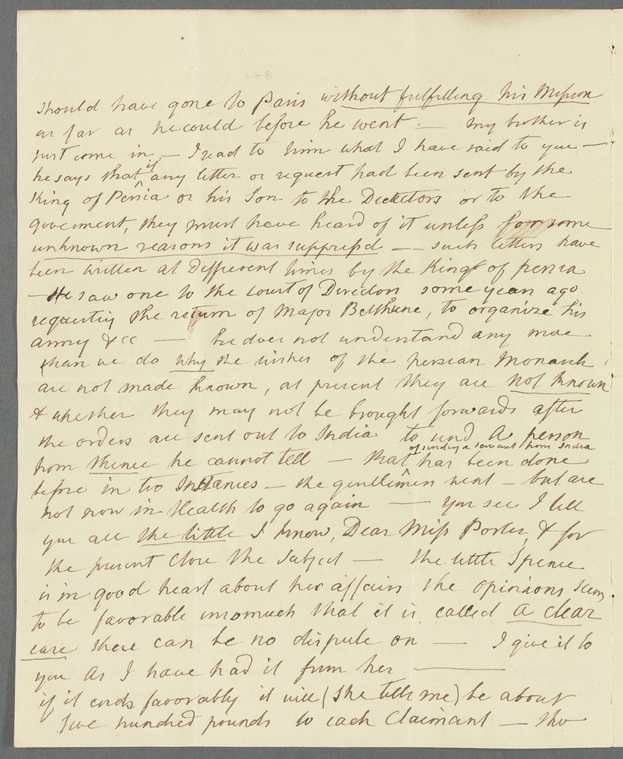 should have gone to Paris without fulfilling his Mission
as far as he could before he went. — My brother is
just come in — I read to him what I have said to you —
he says that if any letter or request had been sent by the
King of Persia or his Son to the Directors or to the
government, they must have heard of it unless for some
unknown reasons it was suppressd — such letters have
been written at different times by the King of persia
— He saw one to the court of Directors some years ago
requesting the return of Major Bethune, to organize his
army &cc — he does not understand any more
than we do why the wishes of the persian Monarch
are not made known, at present they are not known
& whether they may not be brought forwards after
the orders are sent out to India to send A person
from thence he cannot tell — that of sending a servant from India has been done
before in two Instances — the gentlemen went — but are
not now in Health to go again — You see I tell
you all the little I know, Dear Miss Porter, & for
the present close the subject — the little Spence
is in good heart about her affairs the opinions seem
to be favorable insomuch that it is called a clear
case there can be no dispute on — I give it to
you As I have had it from her —
if it ends favorably it will (she tells me) be about
five hundred pounds to each Claimant — tho